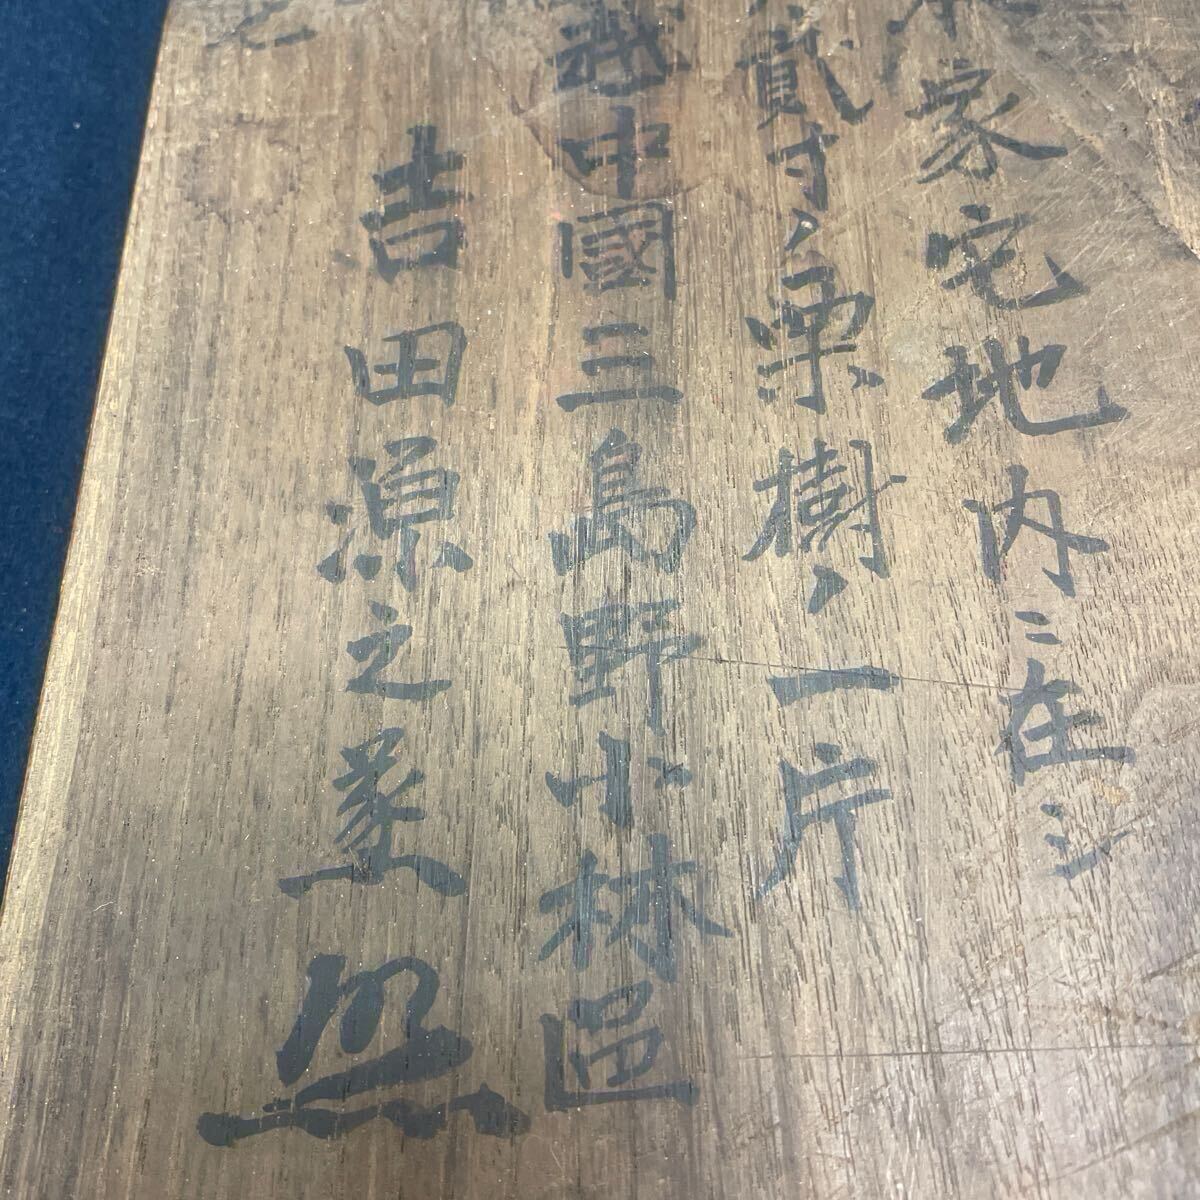 家宅地内ニ在シ
貳寸ノ栗樹ノ一片
越中國三島野小林邑
吉田源之丞